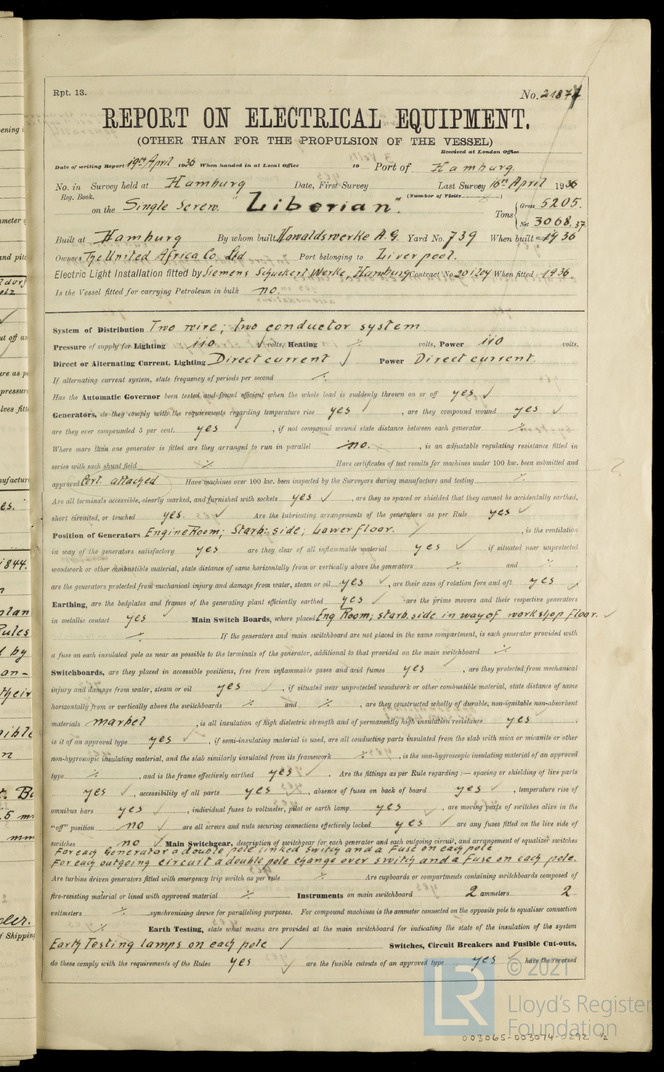 Rpt. 13.
No. 21877
REPORT ON ELECTRICAL EQUIPMENT.
(OTHER THAN FOR THE PROPULSION OF THE VESSEL)
Received at London Office
Date of writing Report 19th April 1936 When handed in at Local Office 19 Port of Hamburg
No. in Survey held at Hamburg Date, First Survey Last Survey 16th April 1936
Reg. Book. (Number of Visits
on the Single Screw "Liberian". Tons { Gross 5205.
Net 3068,37
Built at Hamburg By whom built Howaldswerke A.G. Yard No. 739 When built 1936
Owners The United Africa Co. Ltd Port belonging to Liverpool.
Electric Light Installation fitted by Siemens Schuckert Werke, Hamburg Contract No. 201204 When fitted 1936
Is the Vessel fitted for carrying Petroleum in bulk no
System of Distribution Two wire; two conductor system
Pressure of supply for Lighting 110 volts, Heating volts, Power 110 volts.
Direct or Alternating Current, Lighting Direct current Power Direct current.
If alternating current system, state frequency of periods per second
Has the Automatic Governor been tested and found efficient when the whole load is suddenly thrown on or off yes
Generators, do they comply with the requirements regarding temperature rise yes , are they compound wound yes
are they over compounded 5 per cent. yes , if not compound wound state distance between each generator
Where more than one generator is fitted are they arranged to run in parallel no , is an adjustable regulating resistance fitted in
series with each shunt field Have certificates of test results for machines under 100 kw. been submitted and
approved Cert. attached Have machines over 100 kw. been inspected by the Surveyors during manufacture and testing
Are all terminals accessible, clearly marked, and furnished with sockets yes , are they so spaced or shielded that they cannot be accidentally earthed,
short circuited, or touched yes Are the lubricating arrangements of the generators as per Rule yes
Position of Generators Engine Room; Starb. side; Lower floor. , is the ventilation
in way of the generators satisfactory yes are they clear of all inflammable material yes if situated near unprotected
woodwork or other combustible material, state distance of same horizontally from or vertically above the generators and
are the generators protected from mechanical injury and damage from water, steam or oil yes , are their axes of rotation fore and aft yes
Earthing, are the bedplates and frames of the generating plant efficiently earthed yes are the prime movers and their respective generators
in metallic contact yes Main Switch Boards, where placed Eng. Room; starb. side in way of workshop floor.
If the generators and main switchboard are not placed in the same compartment, is each generator provided with
a fuse on each insulated pole as near as possible to the terminals of the generator, additional to that provided on the main switchboard
Switchboards, are they placed in accessible positions, free from inflammable gases and acid fumes yes , are they protected from mechanical
injury and damage from water, steam or oil yes , if situated near unprotected woodwork or other combustible material, state distance of same
horizontally from or vertically above the switchboards and , are they constructed wholly of durable, non-ignitable non-absorbent
materials marbel , is all insulation of high dielectric strength and of permanently high insulation resistance yes
is it of an approved type yes , if semi-insulating material is used, are all conducting parts insulated from the slab with mica or micanite or other
non-hygroscopic insulating material, and the slab similarly insulated from its framework , is the non-hygroscopic insulating material of an approved
type , and is the frame effectively earthed yes Are the fittings as per Rule regarding :— spacing or shielding of live parts
yes , accessibility of all parts yes , absence of fuses on back of board yes , temperature rise of
omnibus bars yes , individual fuses to voltmeter, pilot or earth lamp yes are moving parts of switches alive in the
"off" position no are all screws and nuts securing connections effectively locked yes are any fuses fitted on the live side of
switches no Main Switchgear, description of switchgear for each generator and each outgoing circuit, and arrangement of equaliser switches
For each Generator a double pole linked switch and a fuse on each pole
For each outgoing circuit a double pole change over switch and a Fuse on each pole.
Are turbine driven generators fitted with emergency trip switch as per rule Are cupboards or compartments containing switchboards composed of
fire-resisting material or lined with approved material Instruments on main switchboard 2 ammeters 2
voltmeters synchronising device for paralleling purposes. For compound machines is the ammeter connected on the opposite pole to equaliser connection
Earth Testing, state what means are provided at the main switchboard for indicating the state of the insulation of the system
Earth Testing lamps on each pole Switches, Circuit Breakers and Fusible Cut-outs,
do these comply with the requirements of the Rules yes are the fusible cutouts of an approved type yes have the reversed
LR
© 2021
Lloyd's Register
Foundation
003065-003074-0292 ½